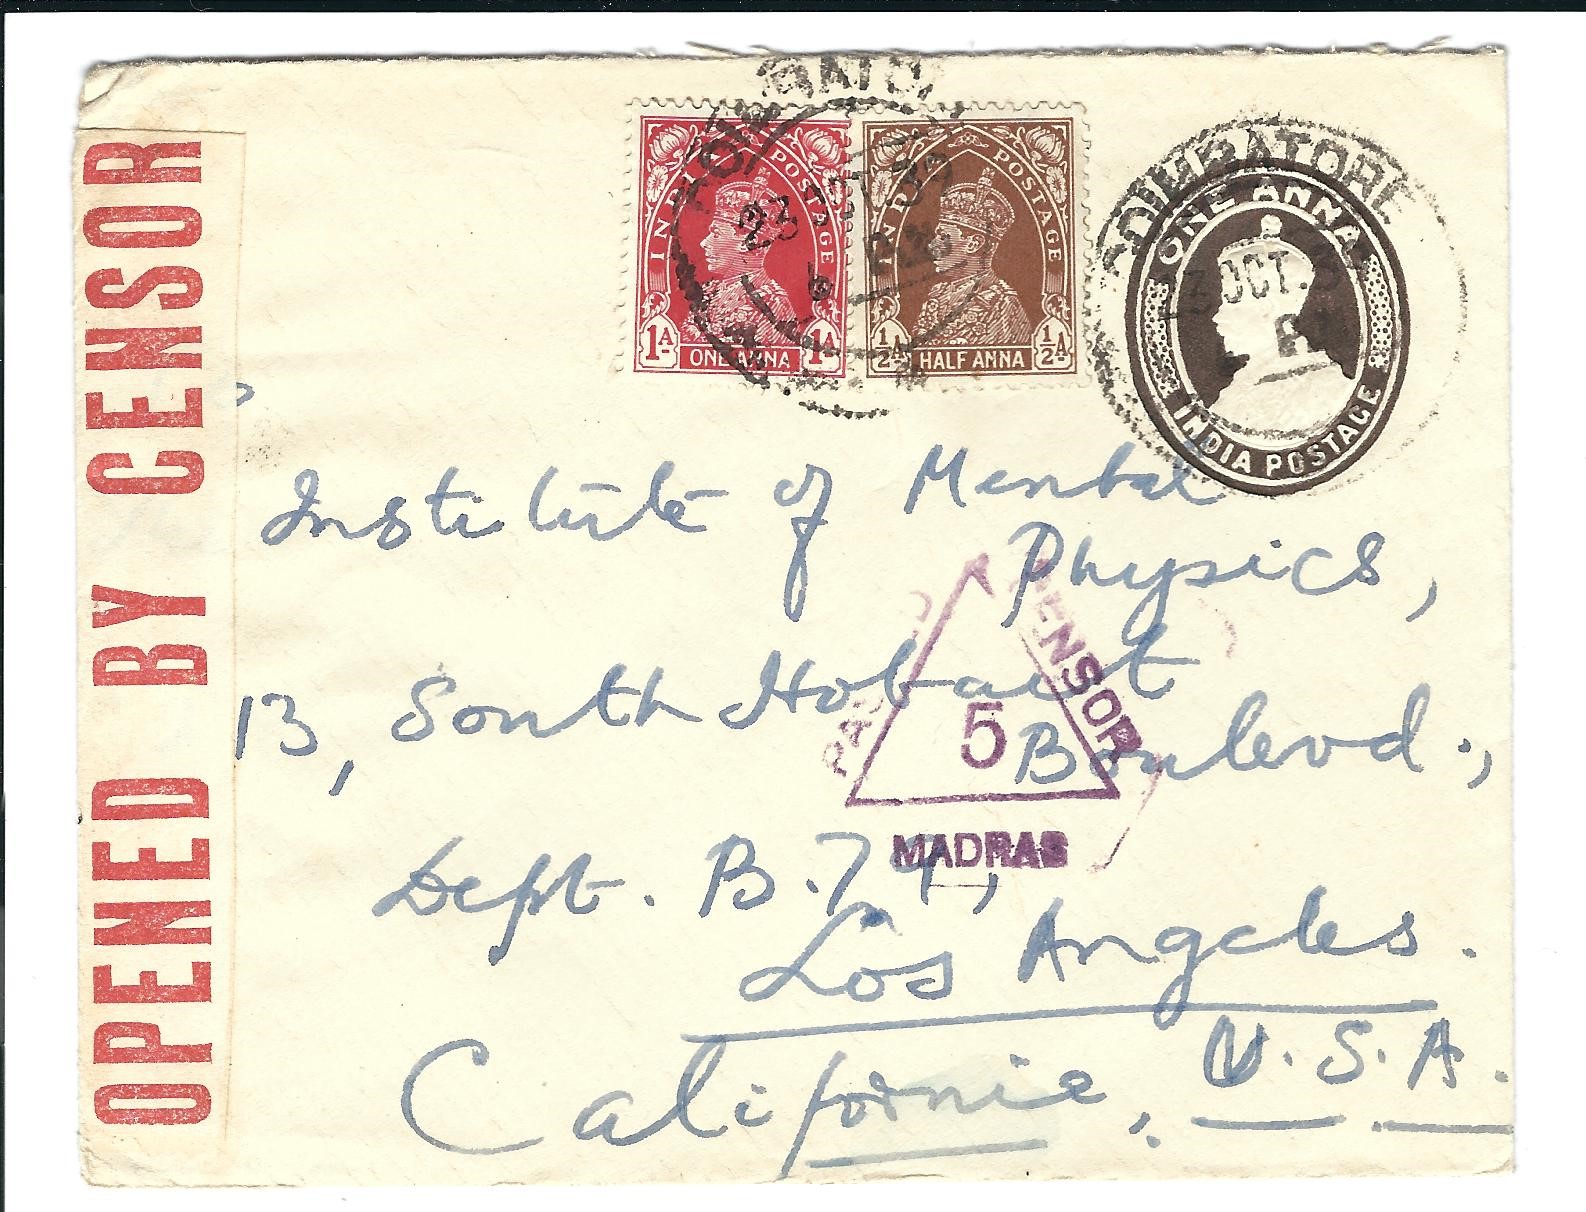 OPENED BY CENSOR
COIMBATORE
23 OCT 39
INDIA POSTAGE
1A 1A
ONE ANNA
INDIA POSTAGE
½A ½A
HALF ANNA
COIMBATORE
OCT. 3
ONE ANNA
INDIA POSTAGE
Institute of Mental
Physics,
13, South Hobart
Boulevd.,
Dept. B.74,
Los Angeles.
California, U.S.A.
PASSED CENSOR
5
MADRAS